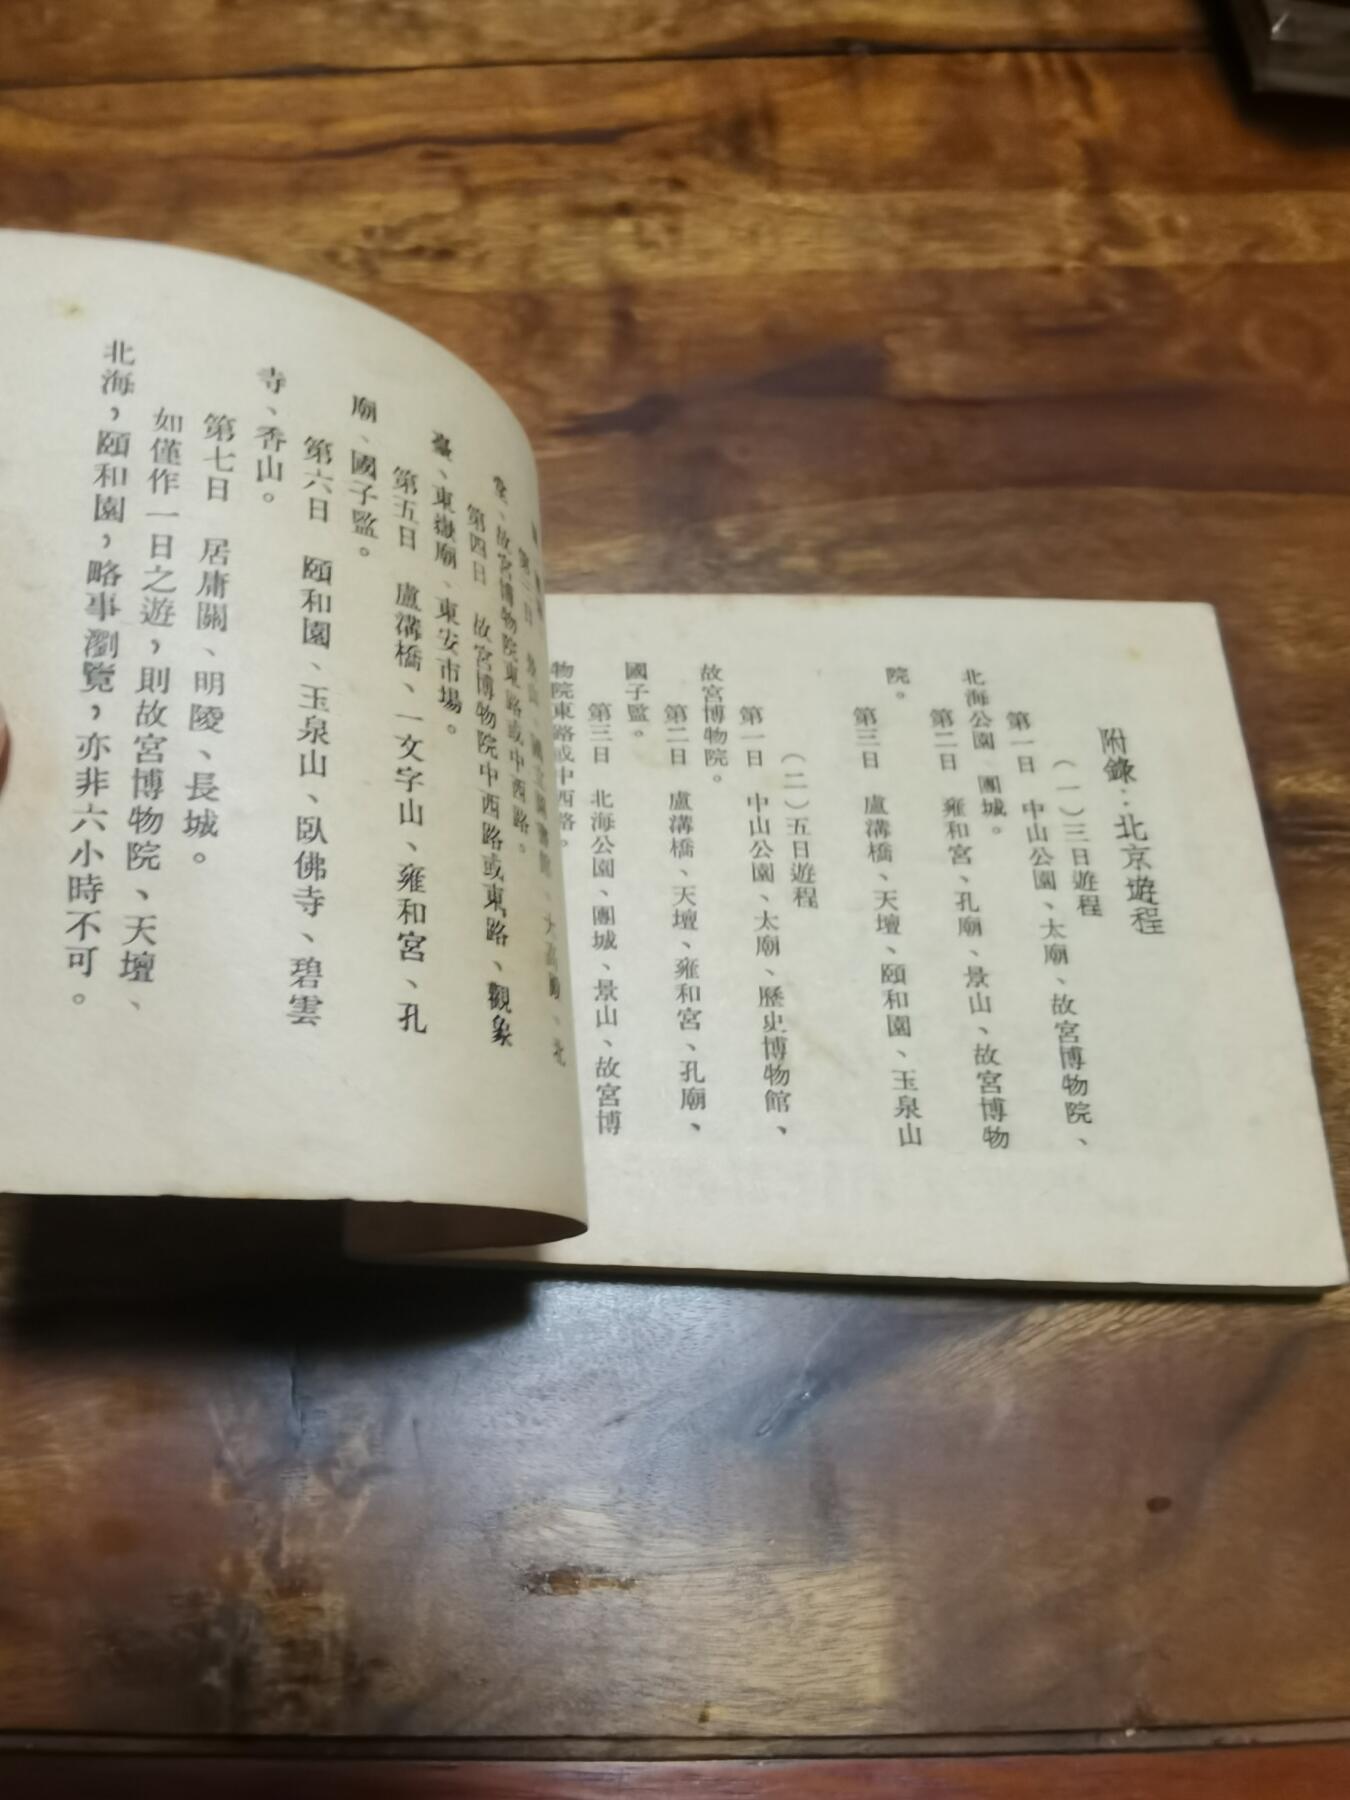 附錄：北京遊程
（一）三日遊程
第一日　中山公園、太廟、故宮博物院、
北海公園　團城。
第二日　雍和宮、孔廟、景山、故宮博物
院。
第三日　盧溝橋、天壇、頤和園、玉泉山
（二）五日遊程
第一日　中山公園、太廟、歷史博物館、
故宮博物院。
第二日　盧溝橋、天壇、雍和宮、孔廟、
國子監。
第三日　北海公園、團城、景山、故宮博
物院東路或中西路。
堂、故宮博物院東路或中西路。
第四日　故宮博物院中西路或東路、觀象
臺、東嶽廟、東安市場。
第五日　盧溝橋、一文字山、雍和宮、孔
廟、國子監。
第六日　頤和園、玉泉山、臥佛寺、碧雲
寺、香山。
第七日　居庸關、明陵、長城。
如僅作一日之遊，則故宮博物院、天壇、
北海，頤和園，略事瀏覽，亦非六小時不可。